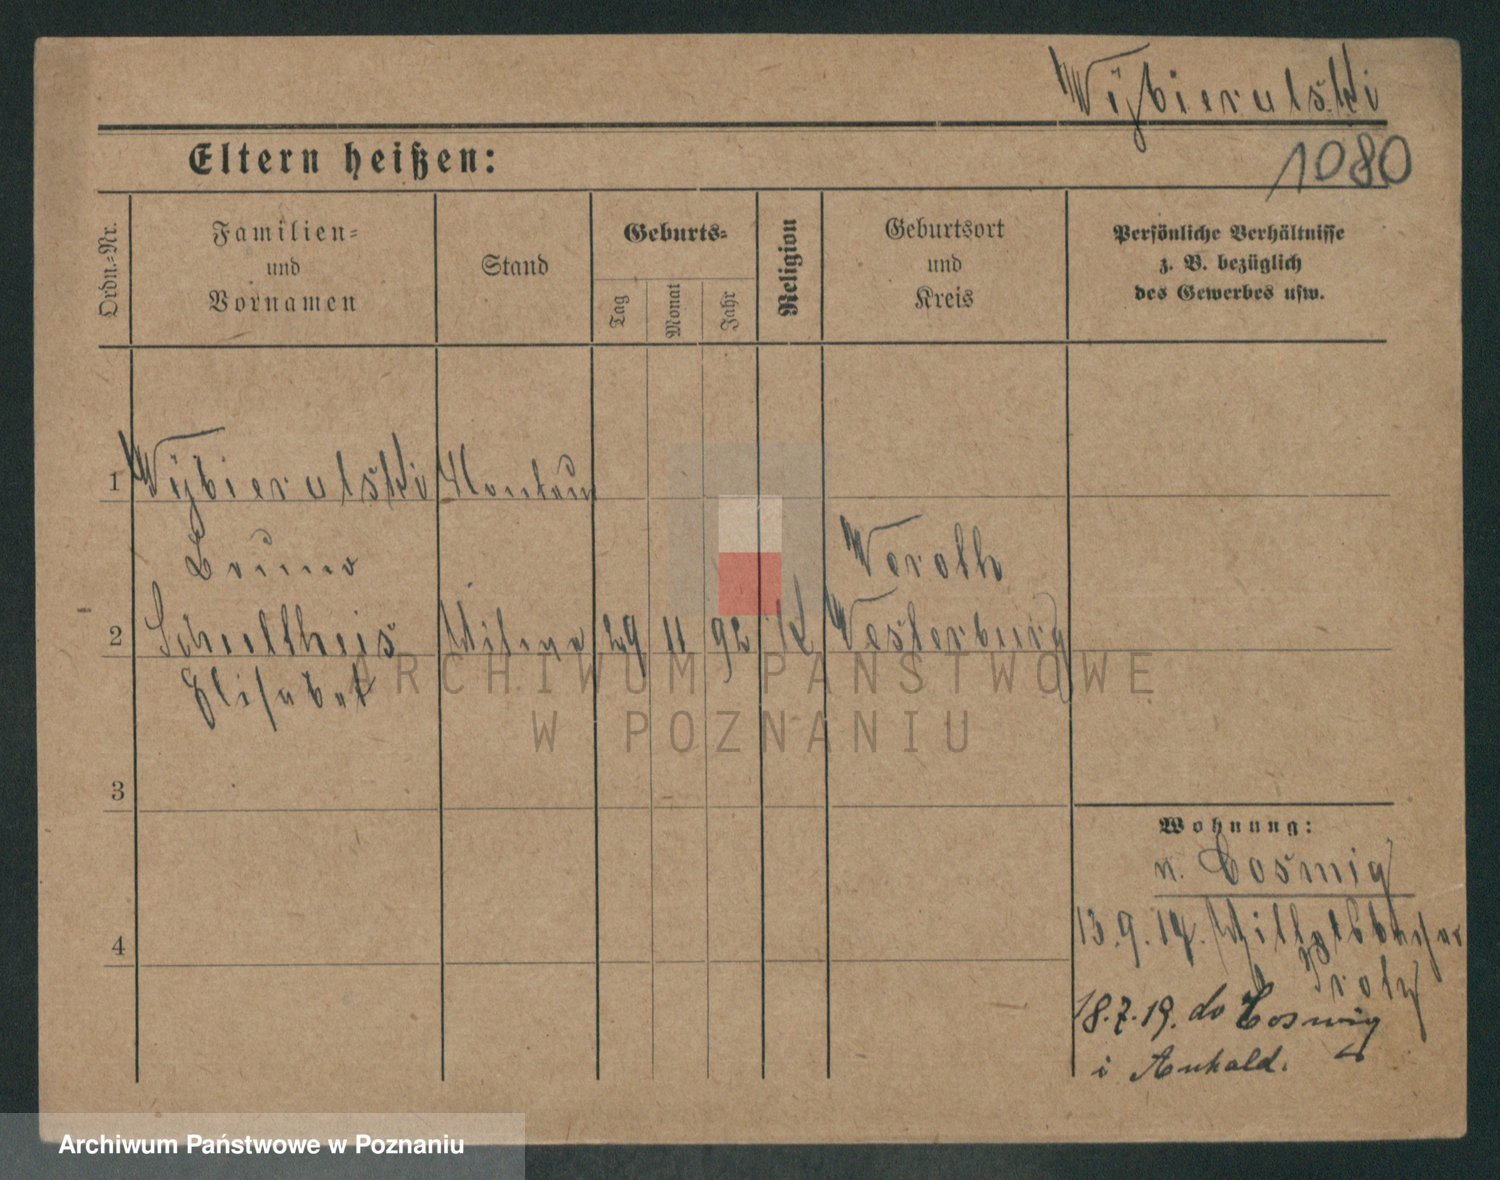 Wÿbieralski
Eltern heißen:
1080
Ordn.-Nr.
Familien-
und
Vornamen
Stand
Geburts-
Tag
Monat
Jahr
Religion
Geburtsort
und
Kreis
Persönliche Verhältnisse
z. B. bezüglich
des Gewerbes usw.
1 Wÿbieralski
Bruno
Weroth
2 Schultheis Witwe 29 11 92 K Westerburg
Elisabet
ARCHIWUM PAŃSTWOWE
W POZNANIU
3
Wohnung:
n. Coswig
4
13.9.14.
18.7.19. do Coswig
i Anhald.
Archiwum Państwowe w Poznaniu